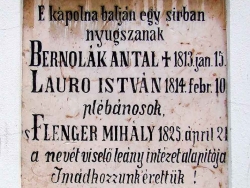 E kápolna balján egy sirban
nyugszanak
BERNOLÁK ANTAL ✝ 1813. jan. 15.
LAURO ISTVÁN 1814. febr. 10
plébánosok,
s FLENGER MIHALY 1825. april 21
a nevét viselő leány intézet alapitója
Imádkozzunk érettük!